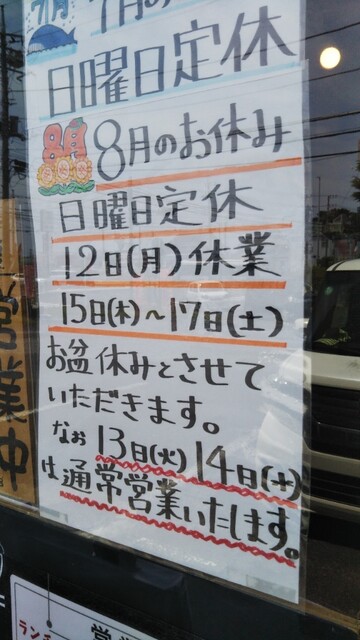 7月 7月の
日曜日定休
8月 8月のお休み
日曜日定休
12日(月)休業
15日(木)〜17日(土)
お盆休みとさせて
いただきます。
なお13日(火)14日(土)
は通常営業いたします。
営業中
ランチ